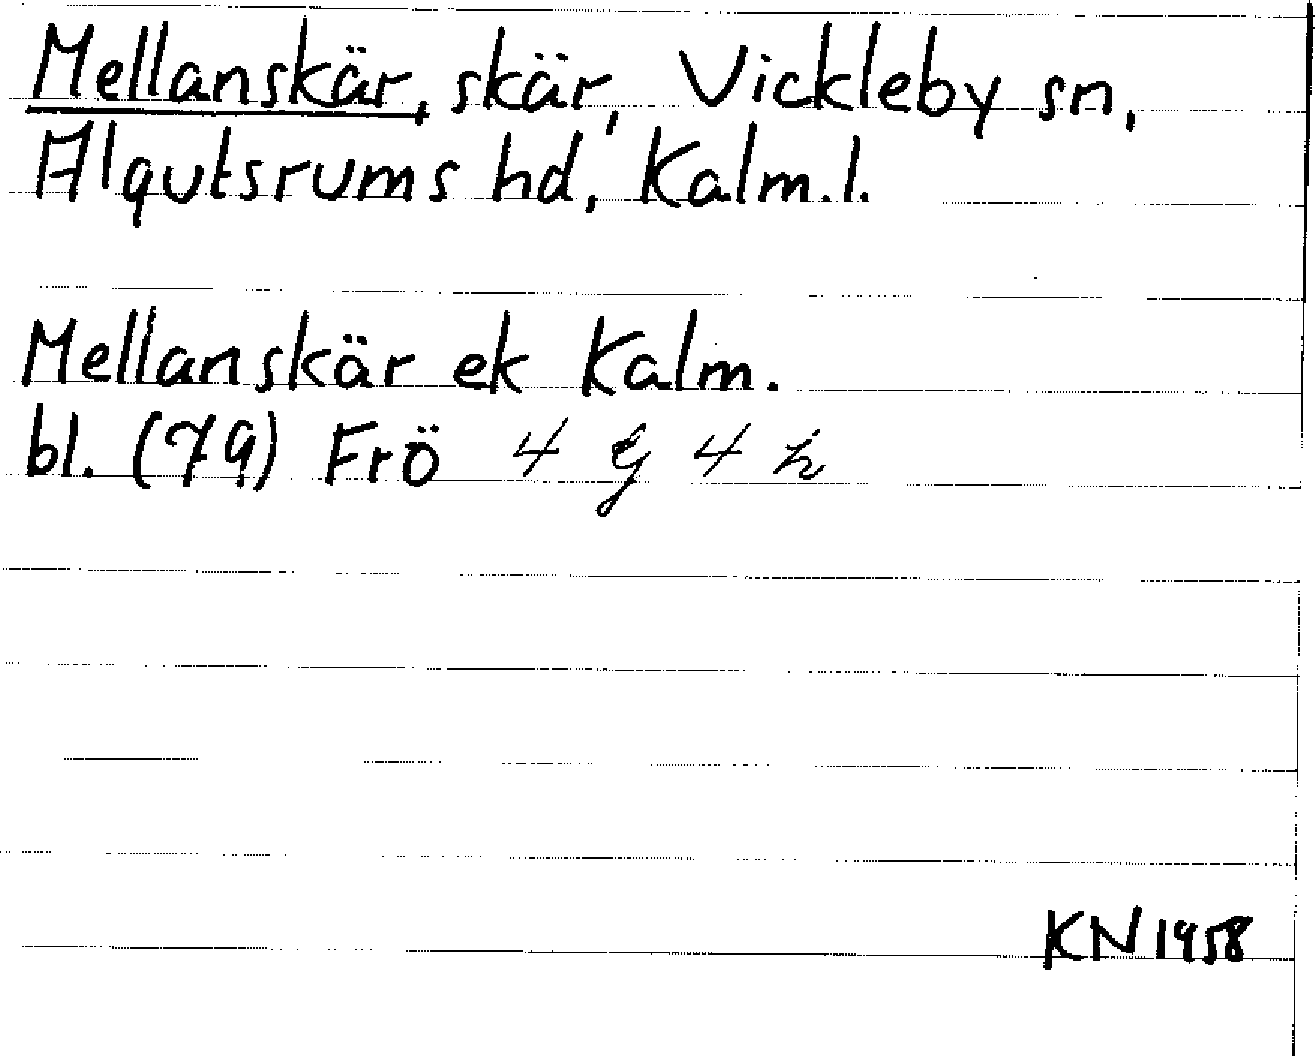 Mellanskär, skär, Vickleby sn,
Algutsrums hd, Kalm.l.
Mellanskär ek Kalm.
bl. (79) Frö 4 g 4 h
KN 1958